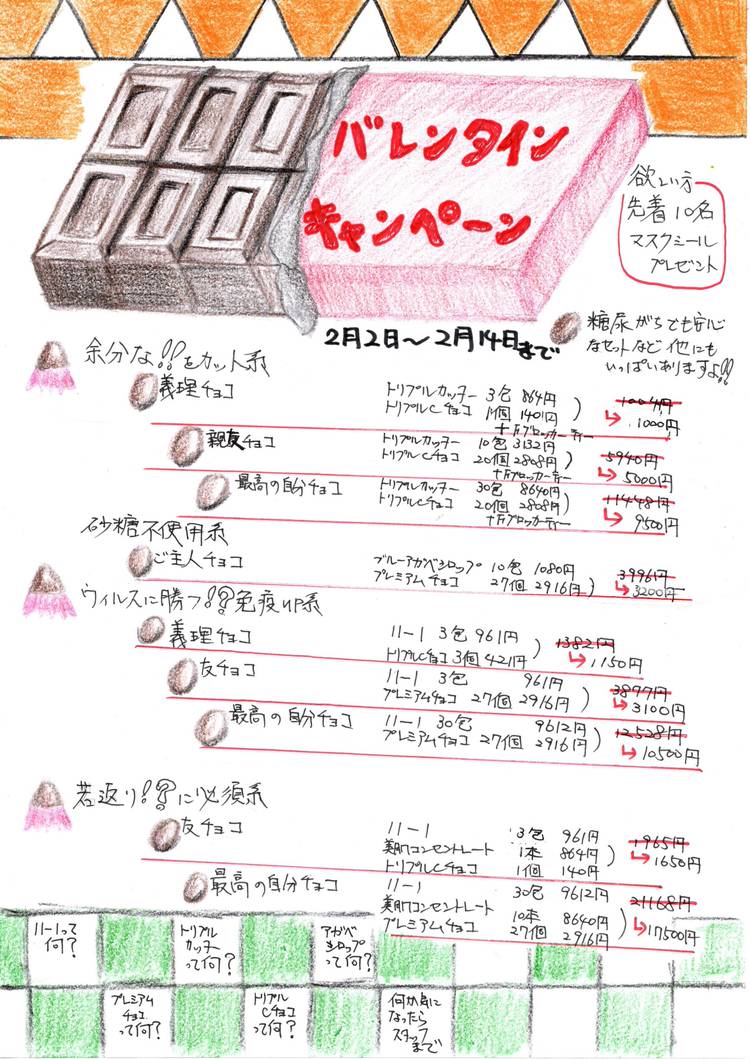 バレンタイン
キャンペーン
欲しい方
先着10名
マスクシール
プレゼント
2月2日～2月14日まで
糖尿がちでも安心
なセットなど他にも
いっぱいありますよ!!
余分な!?をカット系
義理チョコ
トリプルカッター 3包 864円
トリプルCチョコ 1個 140円
+αブロッカーティー
1004円
↳1000円
親友チョコ
トリプルカッター 10包 3132円
トリプルCチョコ 20個 2808円
5940円
↳5000円
最高の自分チョコ
トリプルカッター 30包 8640円
トリプルCチョコ 20個 2808円
11448円
↳9500円
砂糖不使用系
ご主人チョコ
ブルーアガベシロップ 10包 1080円
プレミアムチョコ 27個 2916円
3996円
↳3200円
ウィルスに勝つ!?免疫UP系
義理チョコ
11-1 3包 961円
トリプルCチョコ 3個 421円
1382円
↳1150円
友チョコ
11-1 3包 961円
プレミアムチョコ 27個 2916円
3877円
↳3100円
最高の自分チョコ
11-1 30包 9612円
プレミアムチョコ 27個 2916円
12528円
↳10500円
若返り!?に必須系
友チョコ
11-1 3包 961円
美肌コンセントレート 1本 864円
トリプルCチョコ 1個 140円
1965円
↳1650円
最高の自分チョコ
11-1 30包 9612円
美肌コンセントレート 10本 8640円
プレミアムチョコ 27個 2916円
21168円
↳17500円
11-1って
何?
トリプル
カッター
って何?
アガベ
シロップ
って何?
プレミアム
チョコ
って何?
トリプル
Cチョコ
って何?
何か気に
なったら
スタッフ
まで